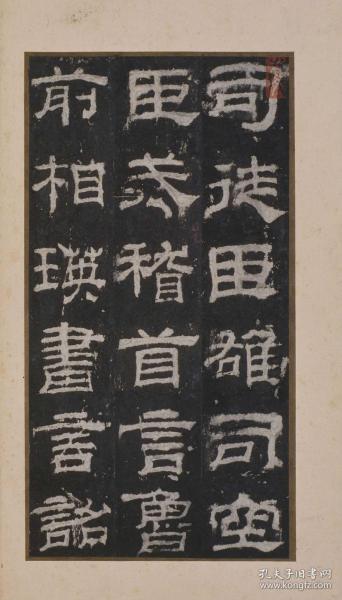 司徒臣雄司空
臣戒稽首言魯
前相瑛書言詔
孔夫子旧书网